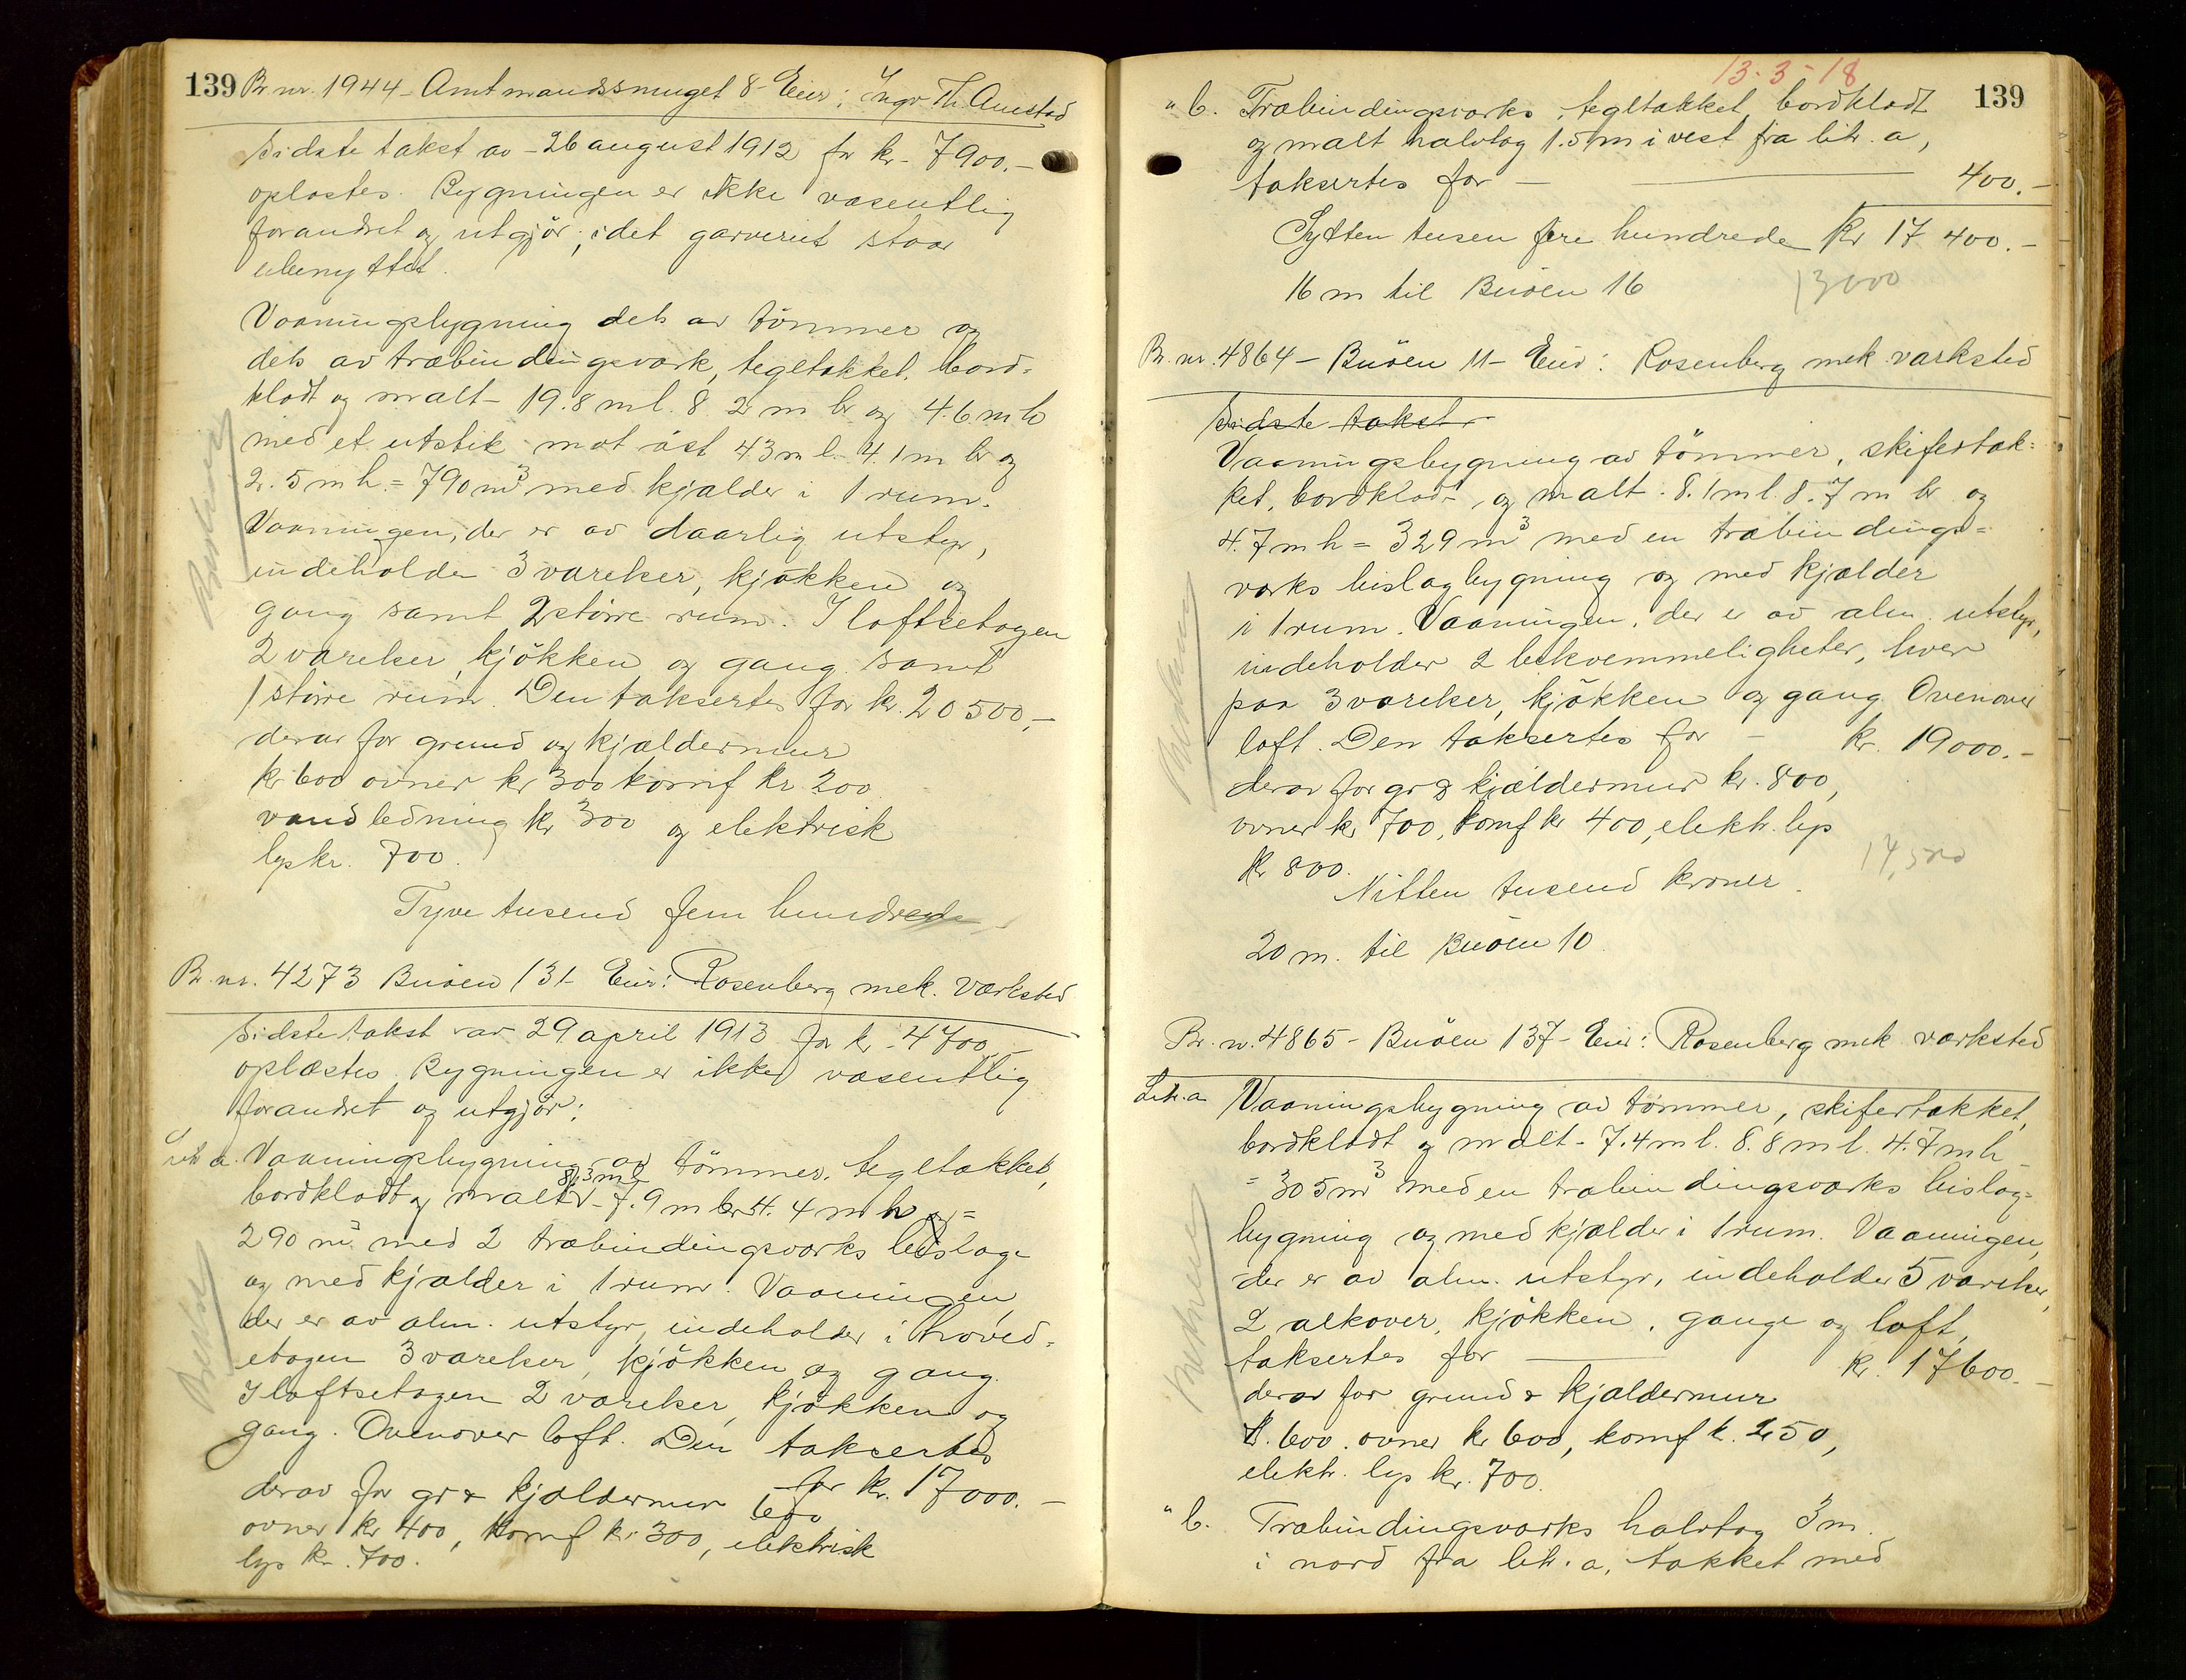 139 Br. nr. 1944 - Amtmandssmuget 8 - Eier: Ingv. Th. Amstad
Sidste takst av - 26 august 1912 for kr. 7900.-
oplæstes. Bygningen er ikke væsentlig
forandret og utgjör; idet garveriet staar
ubenyttet.
Vaaningsbygning dels av tömmer og
dels av træbindingsværk, tegltækket, bord-
klædt og malt - 19.8 m l. 8.2 m br og 4.6 m h
med et utstik mot öst 4.3 m l. 4.1 m br og
2.5 m h. = 790 m³ med kjælder i 1 rum.
Vaaningen, der er av daarlig utstyr,
indeholder 3 værelser, kjökken og
gang samt 2 större rum. I loftsetagen
2 værelser, kjökken og gang samt
1 större rum. Den taksertes for kr. 20500,-
derav for grund og kjældermur
kr 600 ovner kr 300 komf kr. 200
vandledning kr 300 og elektrisk
lys kr. 700.
Tyve tusend fem hundrede
Br. nr. 4273 Buöen 131 - Eier: Rosenberg mek. Værksted
Sidste takst var 29 april 1913 for kr. 4700.-
oplæstes. Bygningen er ikke væsentlig
forandret og utgjör:
Litr a. Vaaningsbygning av tömmer, tegltækket,
8.3 m l
bordklædt og malt - 7.9 m br 4.4 m h =
290 m³ med 2 træbindingsværks bislage
og med kjælder i 1 rum. Vaaningen
der er av alm. utstyr, indeholder i hoved-
etagen 3 værelser, kjökken og gang.
I loftsetagen 2 værelser, kjökken og
gang. Ovenover loft. Den taksertes
for kr. 17000.-
derav for gr & kjældermur 600
ovner kr 400, komf kr 300, elektrisk
lys kr. 700.
13-3-18
139
" b. Træbindingsværks, tegltækket, bordklædt
og malt halvtag 1.5 m i vest fra litr. a,
taksertes for - 400.-
Sytten tusen fire hundrede kr 17 400.-
16 m til Buöen 16
13000
Br. nr. 4864 - Buöen 11 - Eier: Rosenberg mek. værksted
Sidste takst
Vaaningsbygning av tömmer, skifertæk-
ket, bordklædt og malt. 8.1 m l. 8.7 m br og
4.7 m h = 329 m³ med en træbindings-
værks bislagbygning og med kjælder
i 1 rum. Vaaningen, der er av alm. utstyr,
indeholder 2 bekvemmeligheter, hver
paa 3 værelser, kjökken og gang. Ovenover
loft. Den taksertes for - kr. 19000.-
derav for gr & kjældermur kr. 800,
ovner kr 700, komf kr 400, elektr. lys
kr 800.
14,500
Nitten tusend kroner.
20 m. til Buöen 10
Br. nr. 4865 - Buöen 137 - Eier: Rosenberg mek værksted
Litr. a Vaaningsbygning av tömmer, skifertækket,
bordklædt og malt - 7.4 m l. 8.8 m l. 4.7 m h
= 305 m³ med en træbindingsværks bislag-
bygning og med kjælder i 1 rum. Vaaningen,
der er av alm. utstyr, indeholder 5 værelser,
2 alkover, kjökken, gange og loft,
taksertes for kr. 17600.-
derav for grund & kjældermur
kr. 600. ovner kr 600, komf k. 250,
elektr. lys kr. 700.
" b. Træbindingsværks halvtag 3 m.
i nord fra litr. a, tækket med